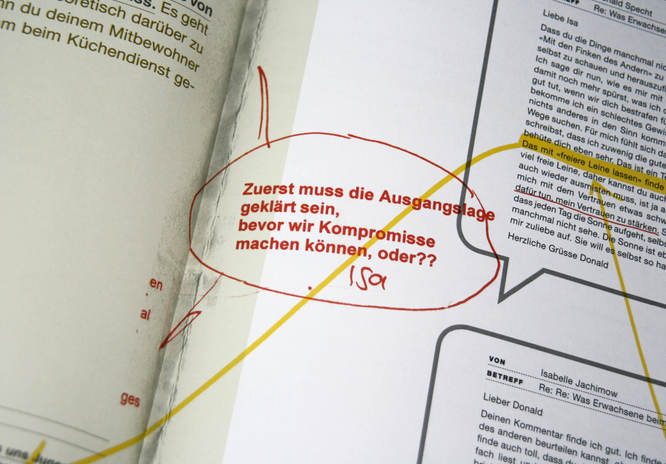 von
oretisch darüber zu
du deinem Mitbewohner
beim Küchendienst ge-
en
al
ges
uns
Zuerst muss die Ausgangslage
geklärt sein,
bevor wir Kompromisse
machen können, oder??
Isa
Donald Specht
Re: Was Erwachsene
Liebe Isa
Dass du die Dinge manchmal
«Mit den Finken des Andern» zu
selbst zu schauen und herauszu
Ich sage dir nun, wie es mir mit
damit noch mehr spürst, was ich
gut tut, wenn wir dich bestrafen
bekomme ich ein schlechtes
nichts anderes in den Sinn
Wege suchen. Für mich fühlt sich
schreibst, dass ich zuwenig die
behüte dich eben sehr. Das ist ein
Das mit «freiere Leine lassen» finde
viel freie Leine, daher kannst du
auch wieder ausmisten muss, ist ja
mich mit dem Vertrauen etwas
dafür tun, mein Vertrauen zu stärken.
dass jeden Tag die Sonne aufgeht,
manchmal nicht sehe. Die Sonne ist
mir zuliebe auf. Sie will es selbst so
Herzliche Grüsse Donald
VON Isabelle Jachimow
BETREFF Re: Re: Was Erwachsene beim
Lieber Donald
Deinen Kommentar finde ich gut. Ich
des anderen beurteilen kannst,
finde auch toll, dass
fach liest und